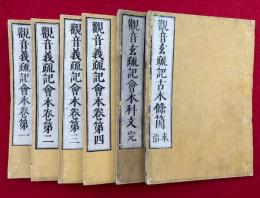 觀音玄疏記古本條箇
末
治
觀音玄疏記會本科文 完
觀音義疏記會本卷第四
觀音義疏記會本卷第三
觀音義疏記會本卷第二
觀音義疏記會本卷第一